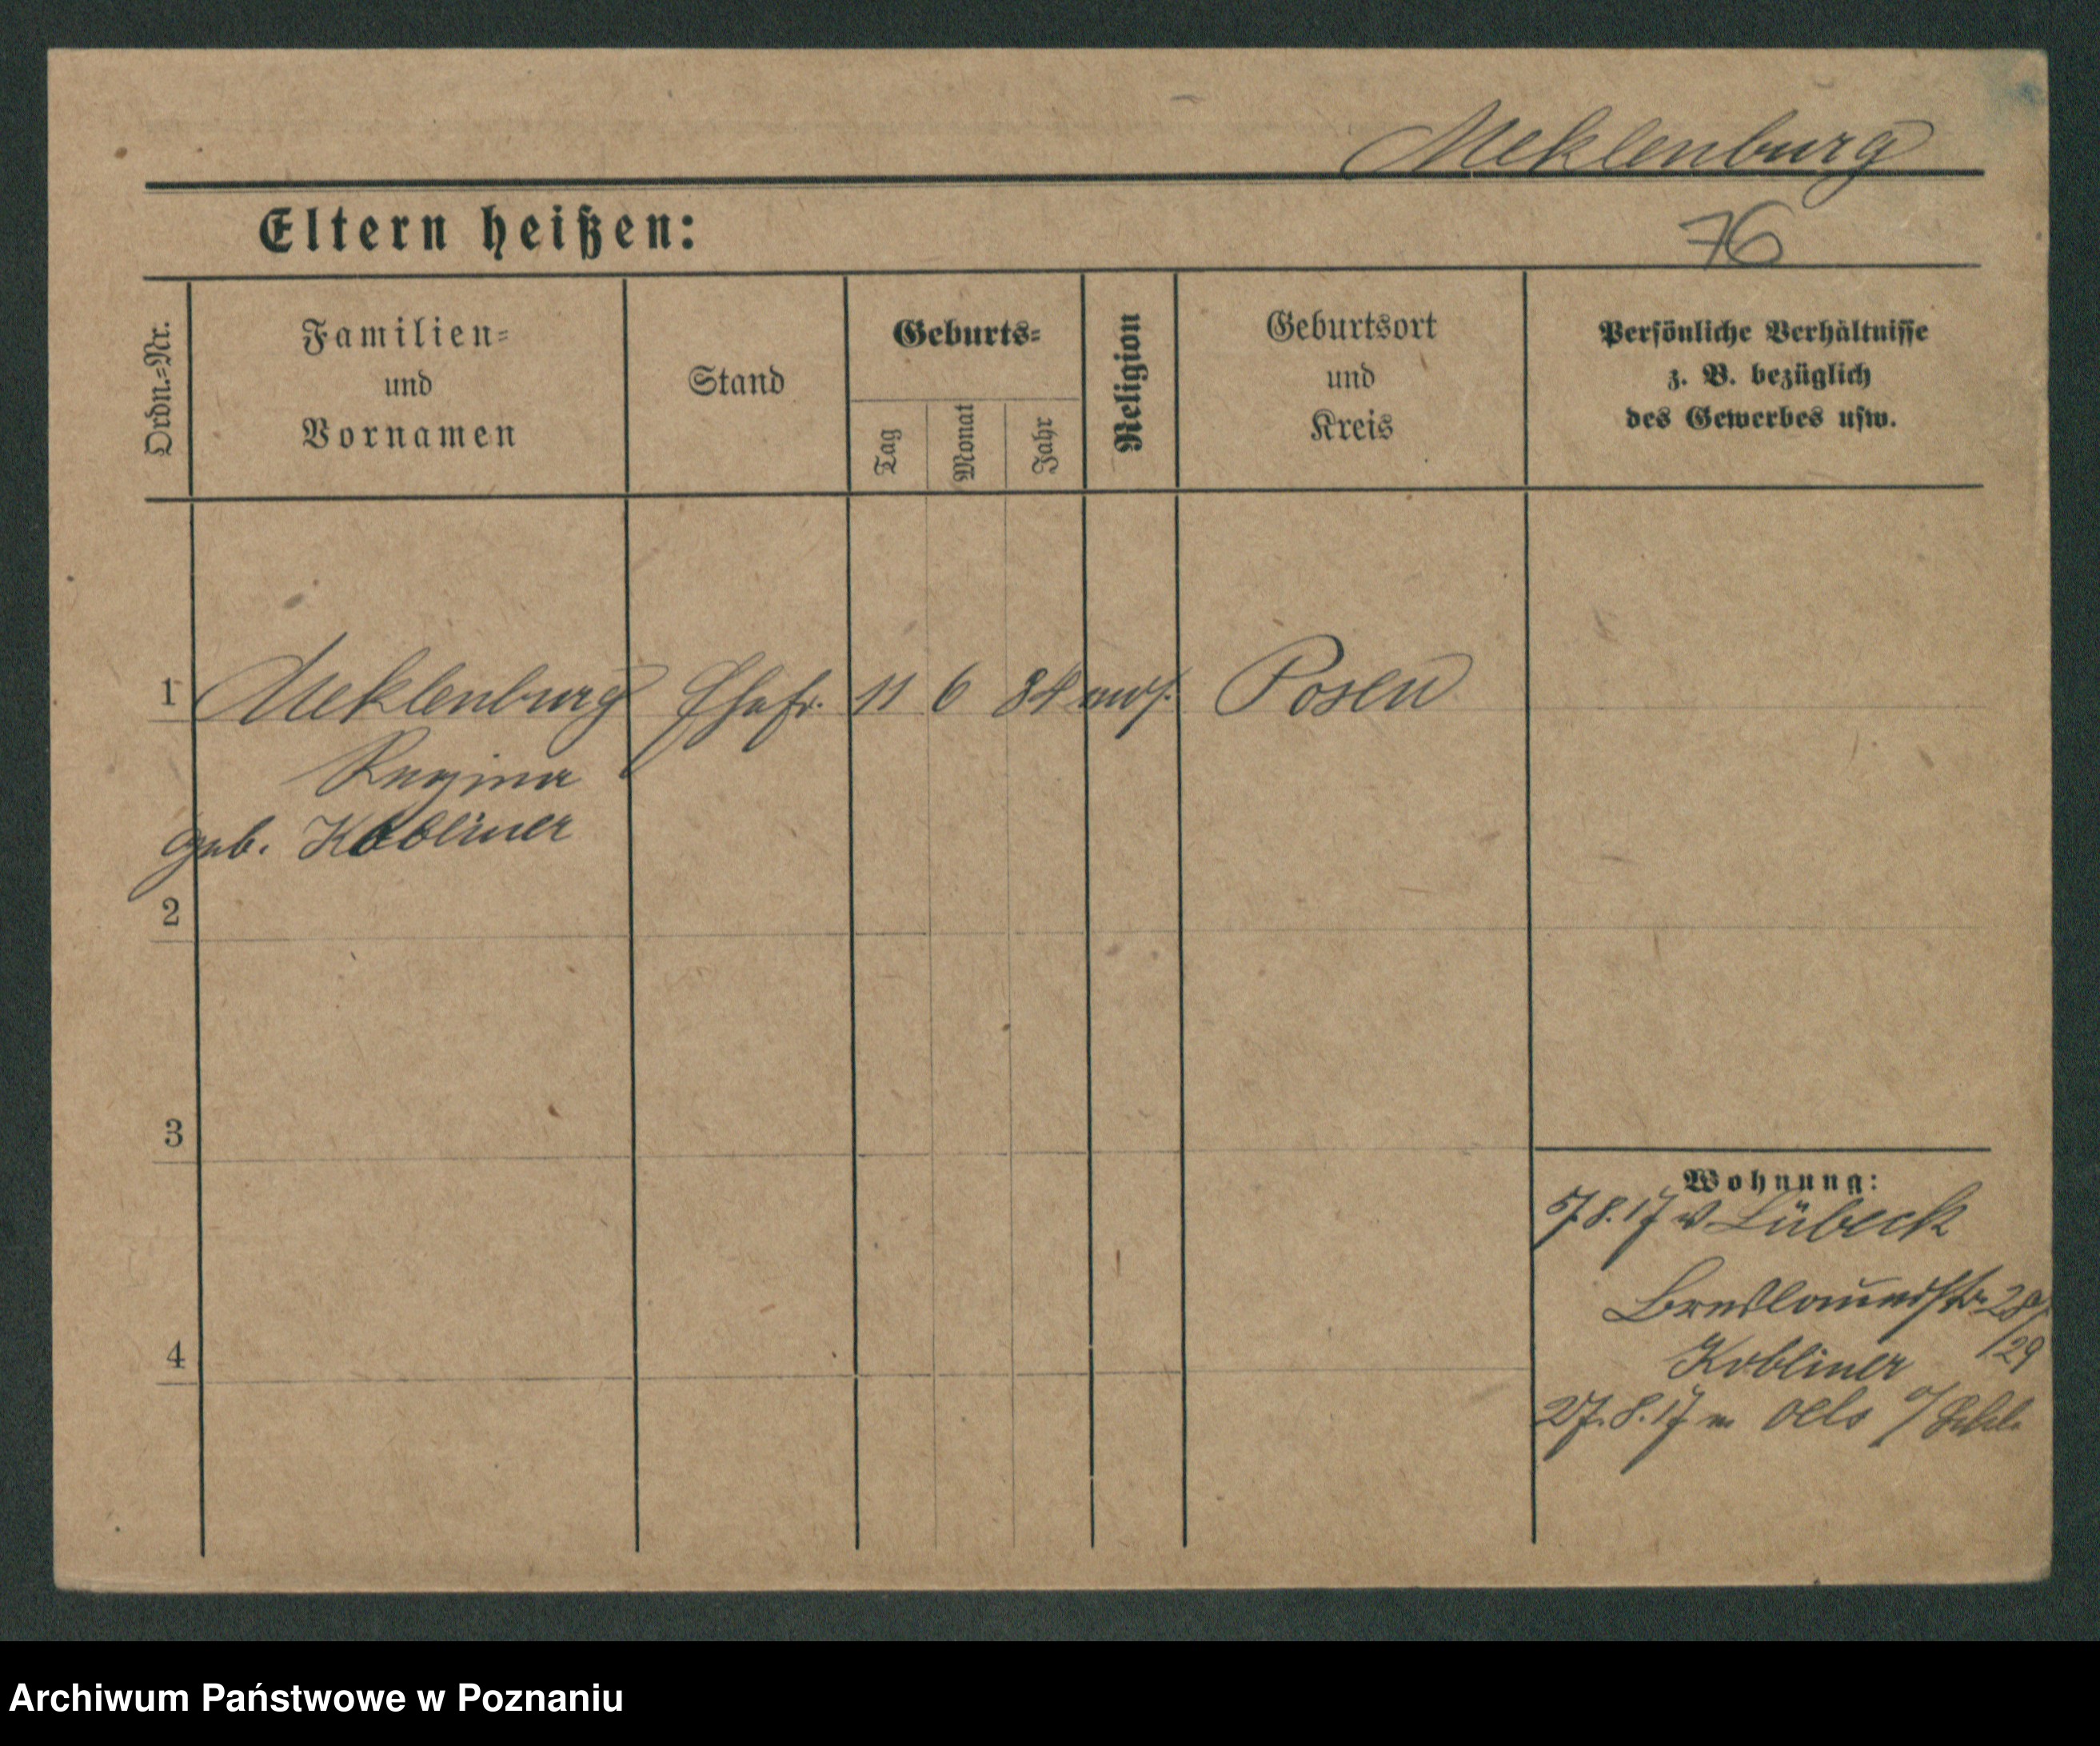 Meklenburg
Eltern heißen:
76
Ordn.=Nr.
Familien=
und
Vornamen
Stand
Geburts=
Tag
Monat
Jahr
Religion
Geburtsort
und
Kreis
Persönliche Verhältnisse
z. B. bezüglich
des Gewerbes usw.
1 Meklenburg Ehefr. 11 6 84 mos. Posen
Regina
geb. Kobliner
2
3
4
Wohnung:
5/8.17 v Lübeck
Breslauerstr. 28
/29
Kobliner
27.8.17 n Oels i/Schl.
Archiwum Państwowe w Poznaniu